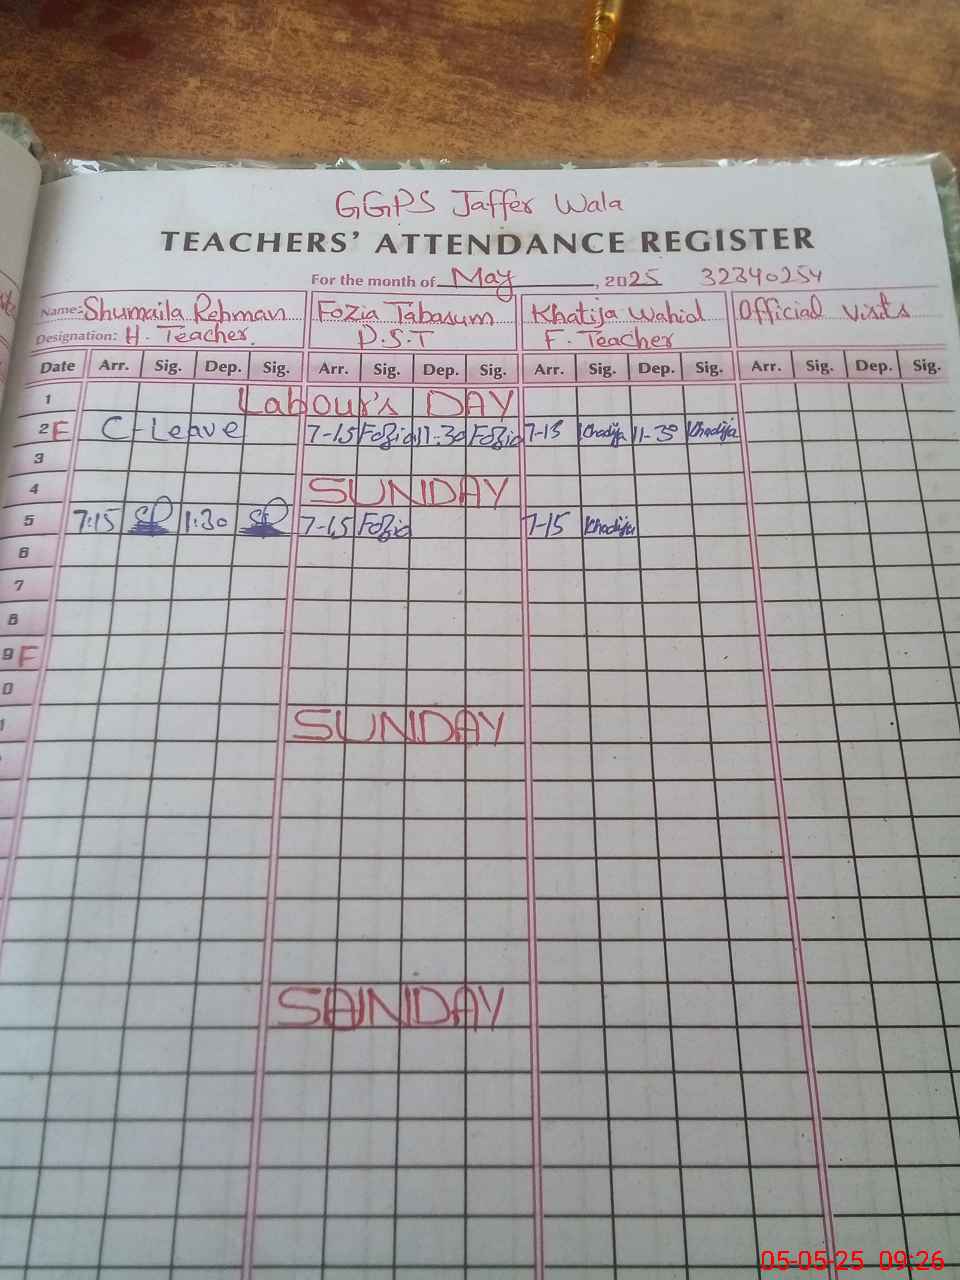 GGPS Jaffer Wala
TEACHERS' ATTENDANCE REGISTER
For the month of May, 2025 32340254
Name: Shumaila Rehman Fozia Tabasum Khatija Wahid Official visits
Designation: H. Teacher. P.S.T F. Teacher
Date Arr. Sig. Dep. Sig. Arr. Sig. Dep. Sig. Arr. Sig. Dep. Sig. Arr. Sig. Dep. Sig.
1 Labour's DAY
2 F C-Leave 7-15 Fozia 11-30 Fozia 7-15 Khadija 11-30 Khadija
3
4 SUNDAY
5 7:15 1:30 7-15 Fozia 7-15 Khadija
6
7
8
9 F
0
SUNDAY
SUNDAY
05-05-25 09:26